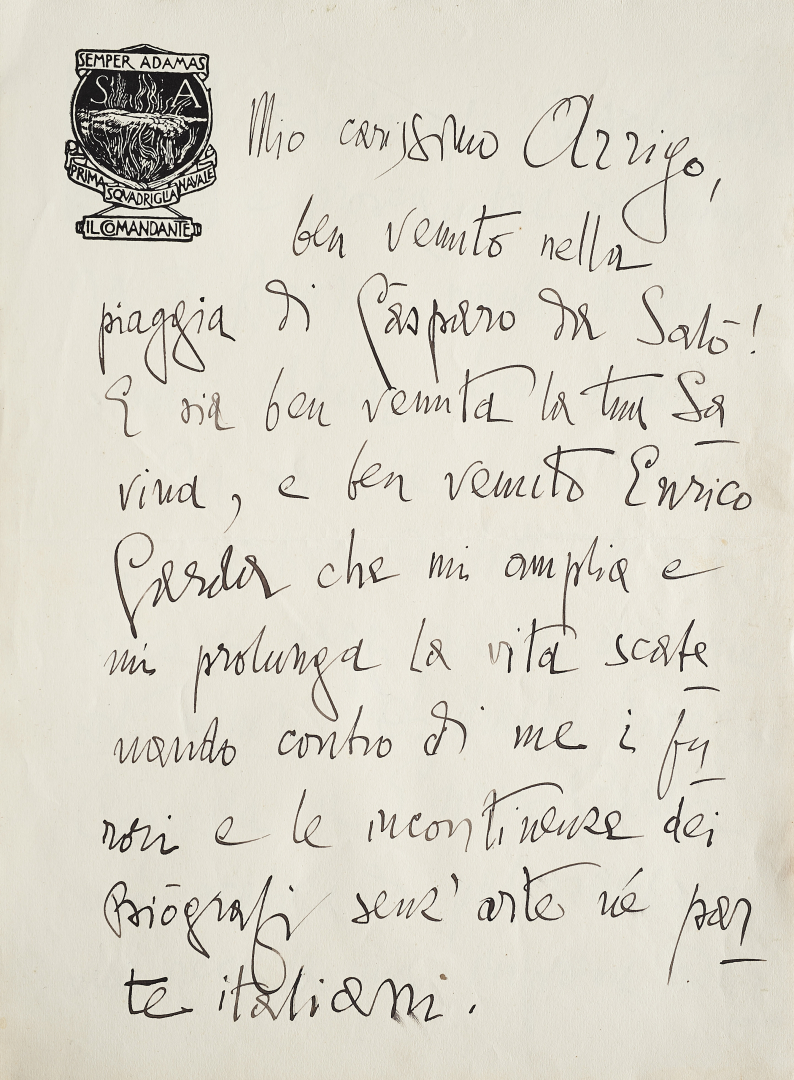 SEMPER ADAMAS
S A
PRIMA SQVADRIGLIA NAVALE
IL COMANDANTE
Mio carissimo Arrigo,
ben venuto nella
piaggia di Gàsparo da Salò!
E sia ben venuta la tua Sa
vina, e ben venuto Enrico
Garda che mi amplia e
mi prolunga la vita scate
nando contro di me i fu
rori e le incontinenze dei
Biògrafi senz' arte né par
te italiani.